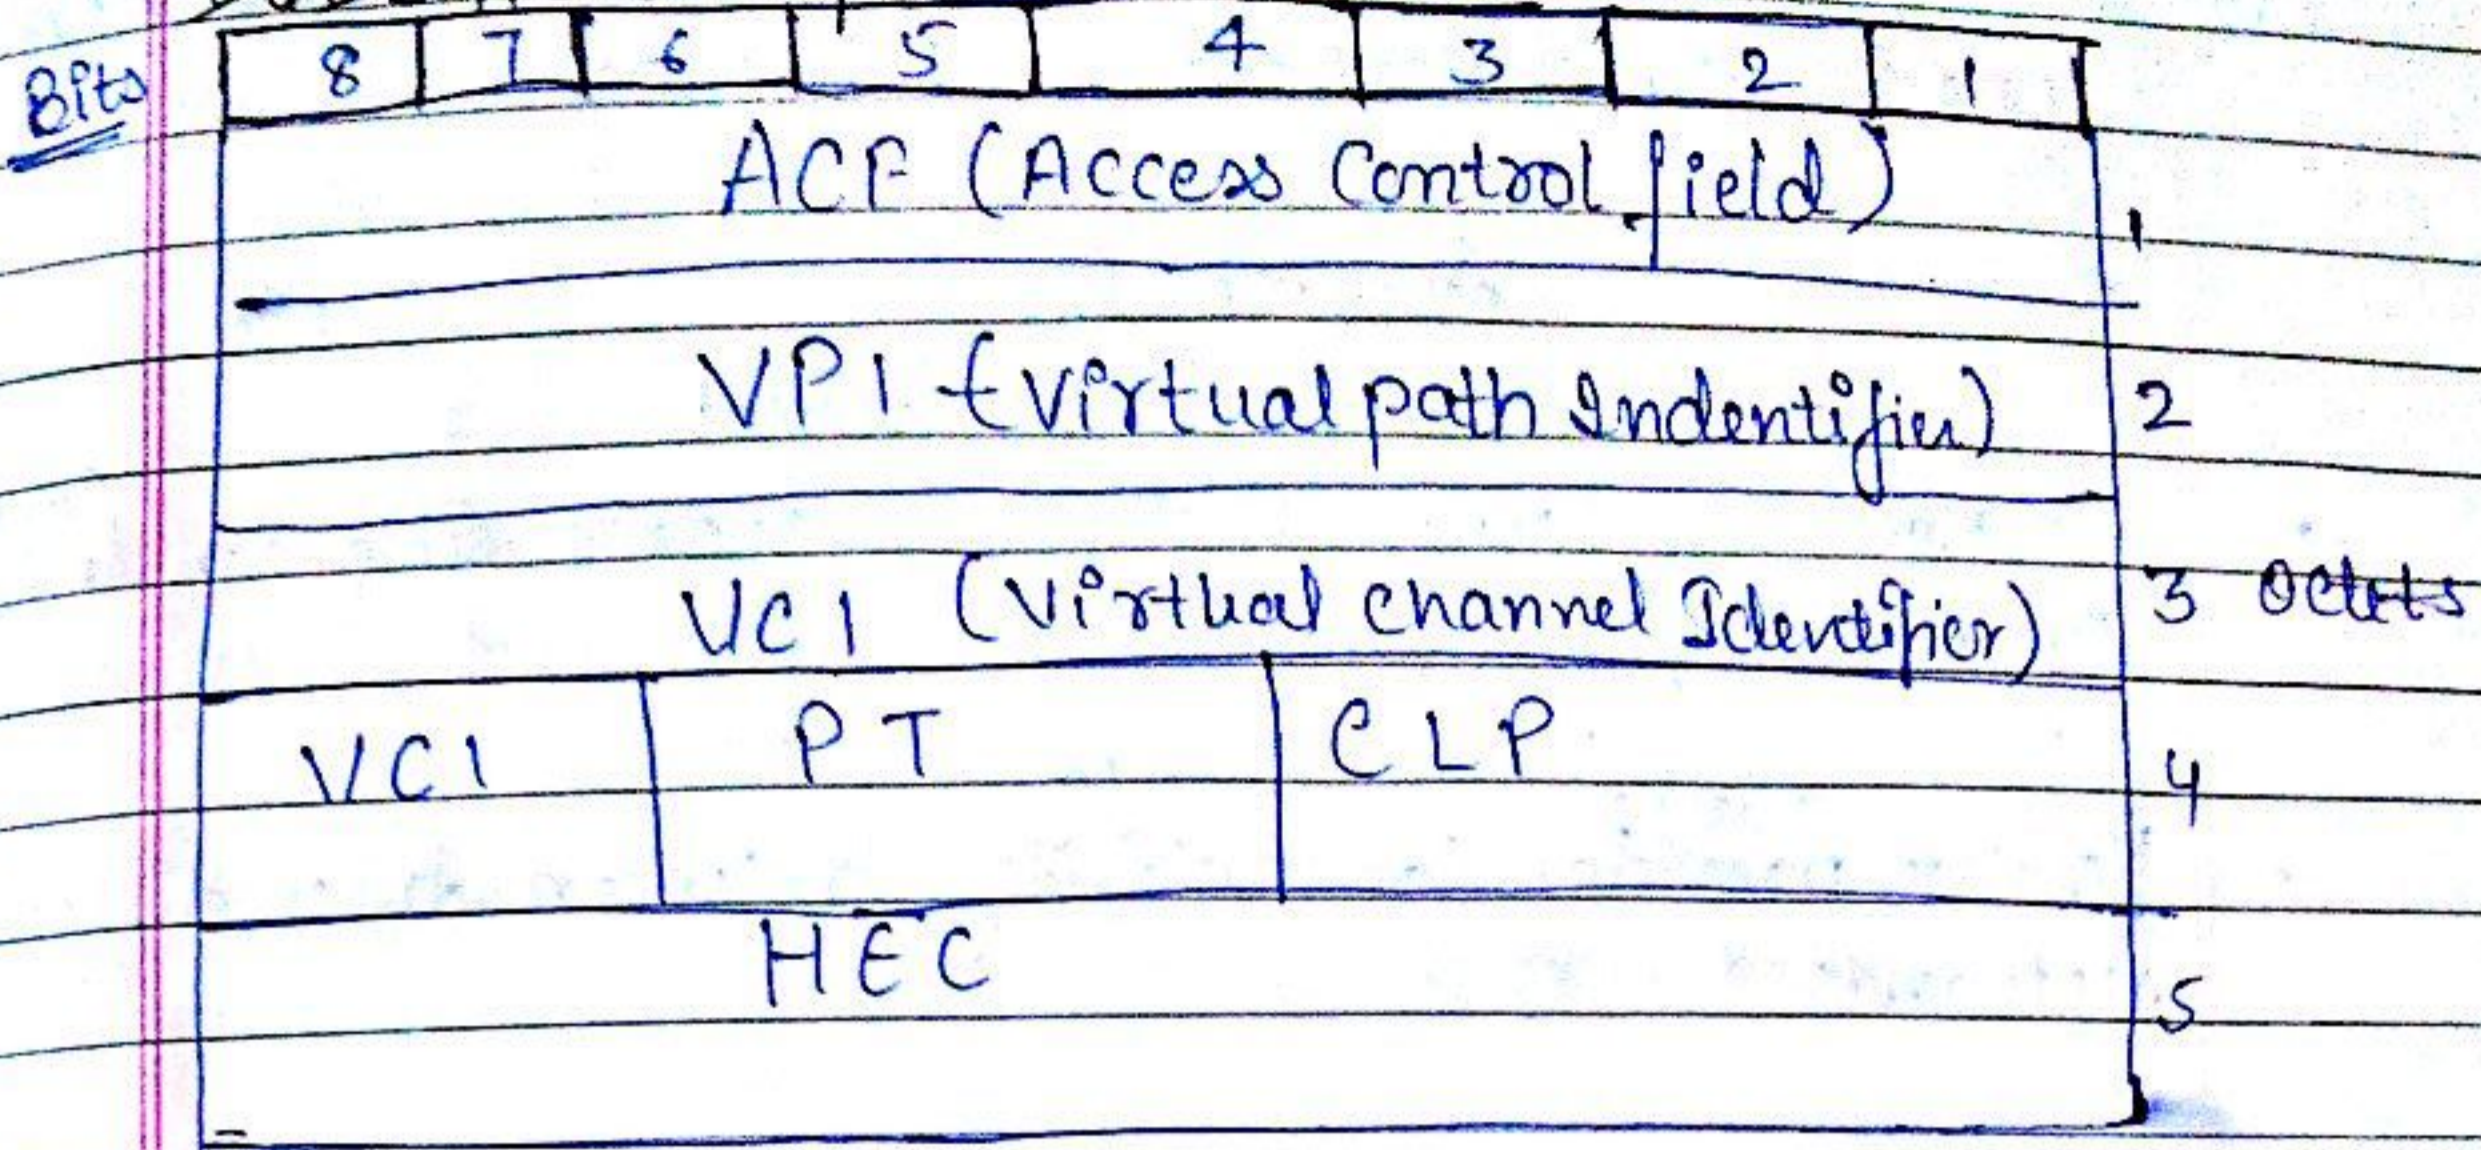 Bits 8 7 6 5 4 3 2 1
ACF (Access Control field) 1
VPI (Virtual path Indentifier) 2
VCI (Virtual channel Identifier) 3 Octets
VCI PT CLP 4
HEC 5